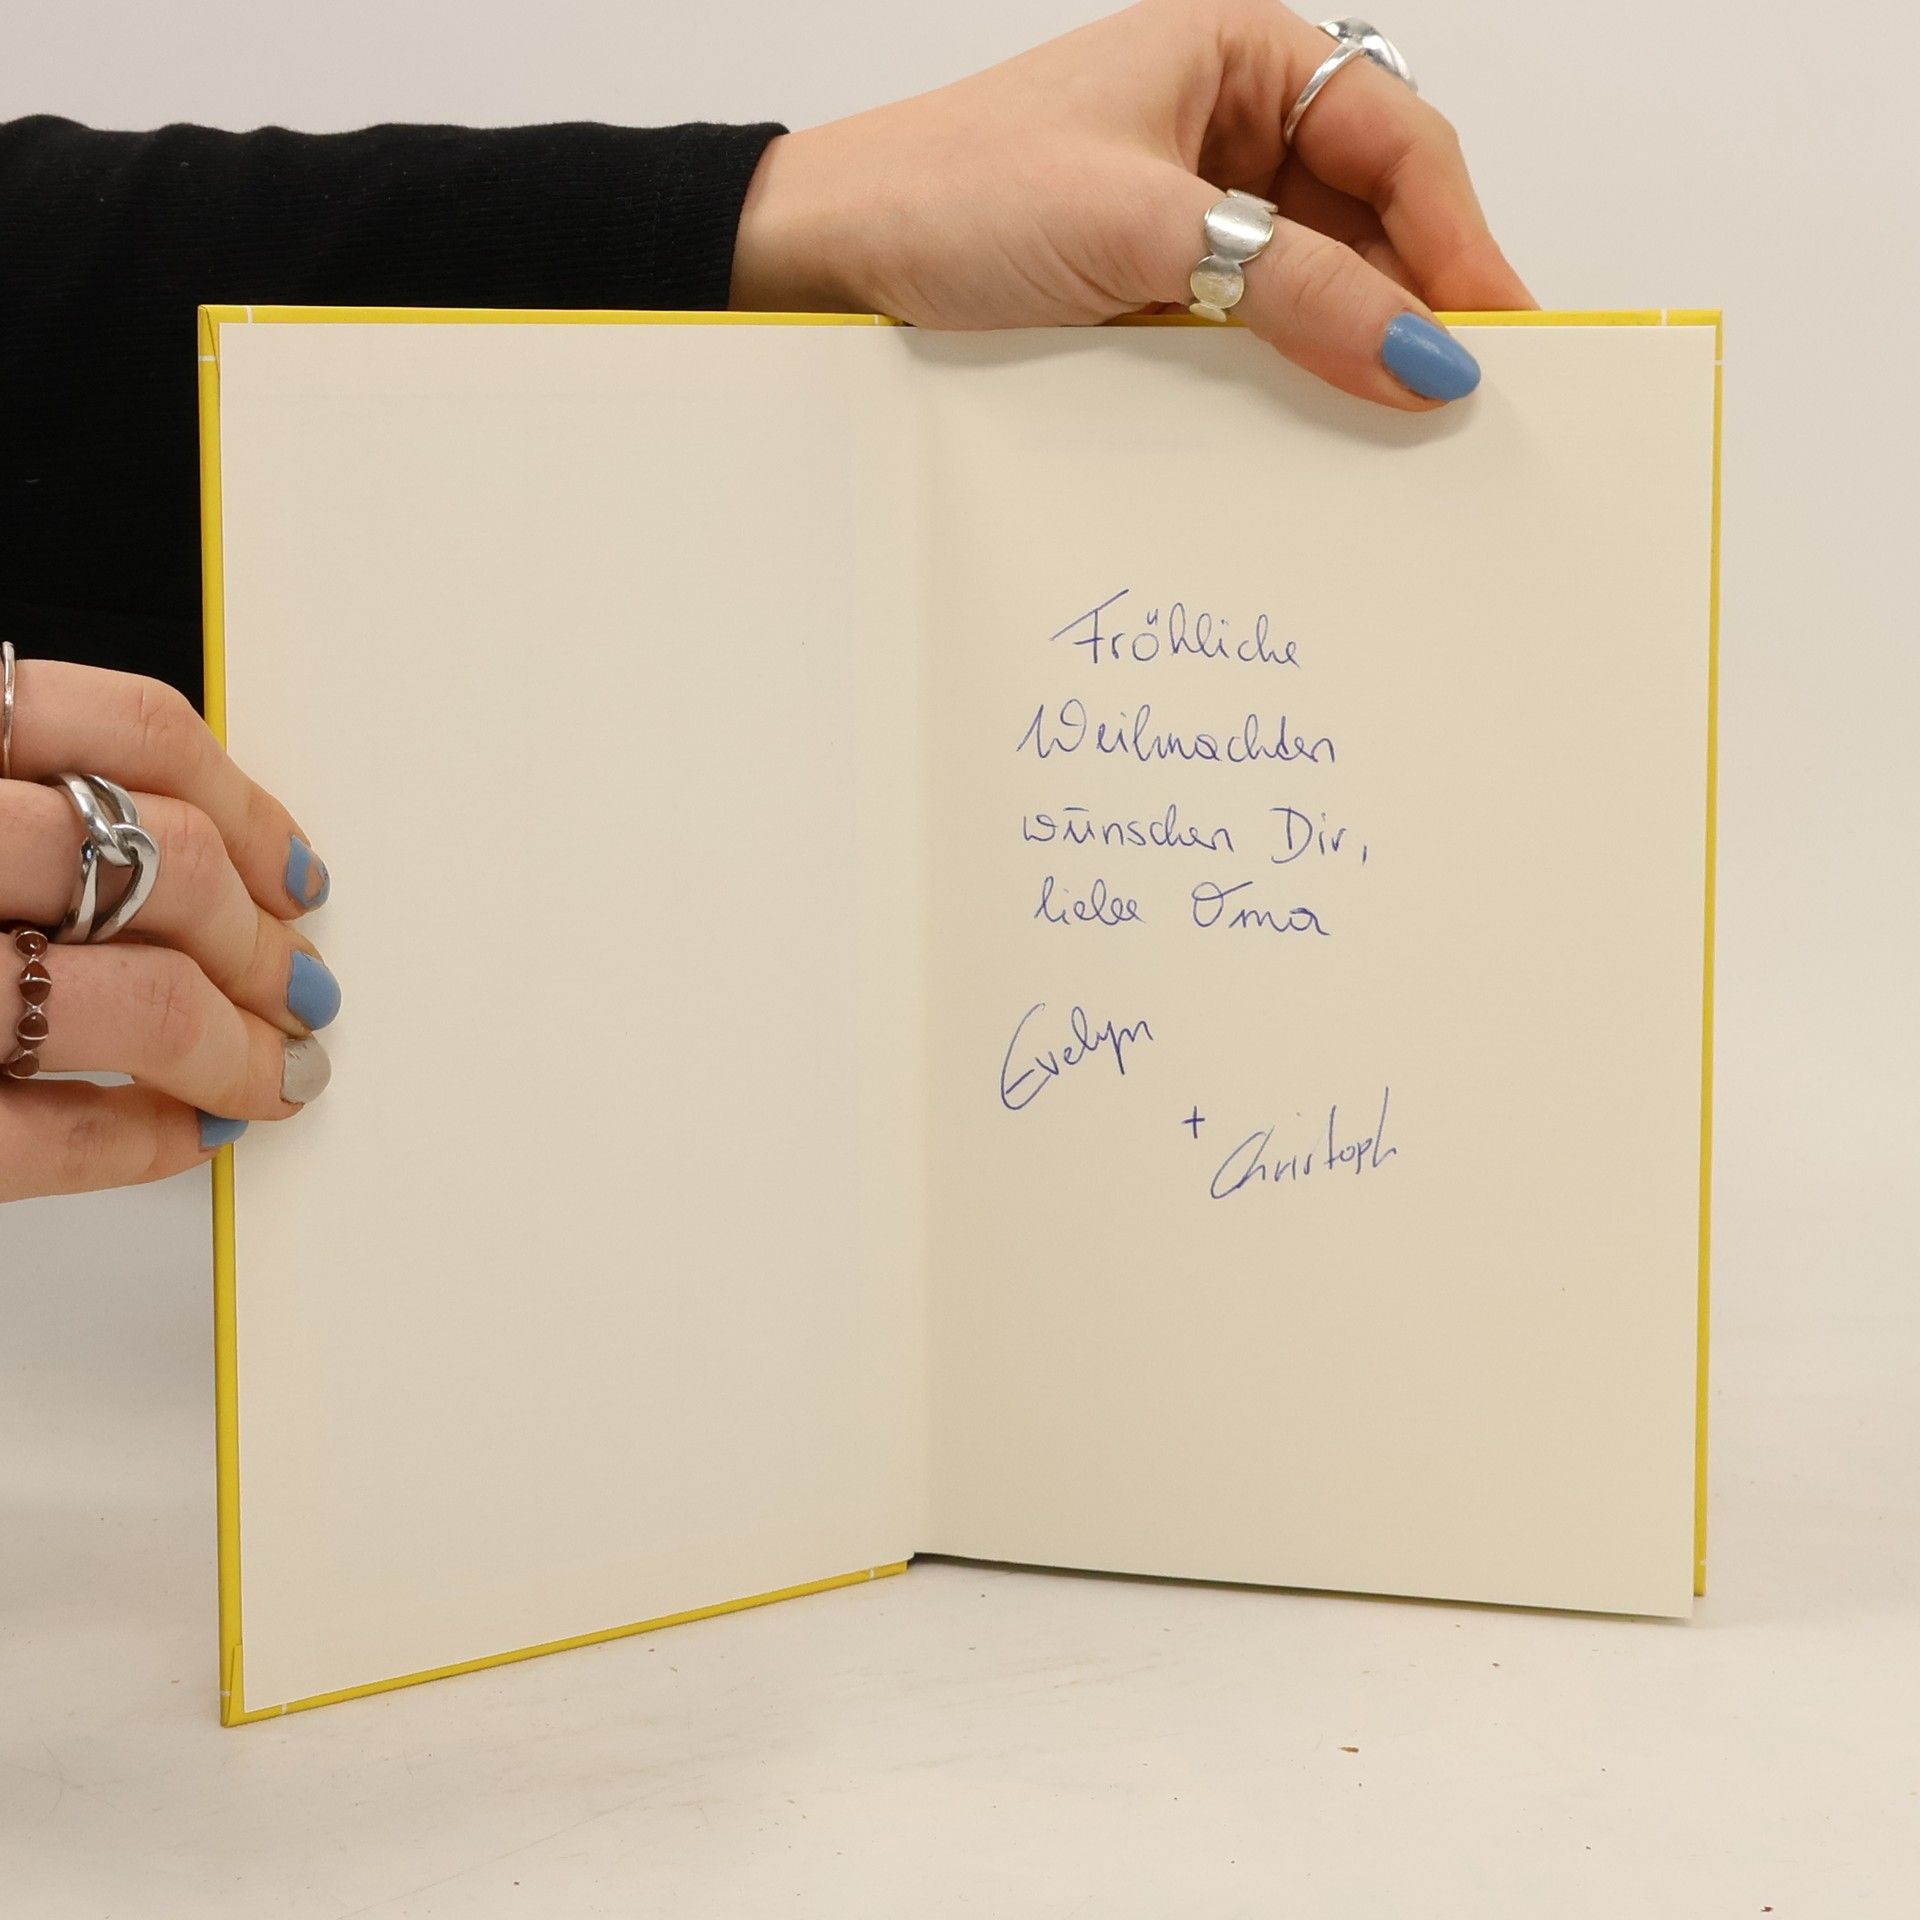 Fröhliche
Weihnachten
wünschen Dir,
liebe Oma
Evelyn
+ Christoph